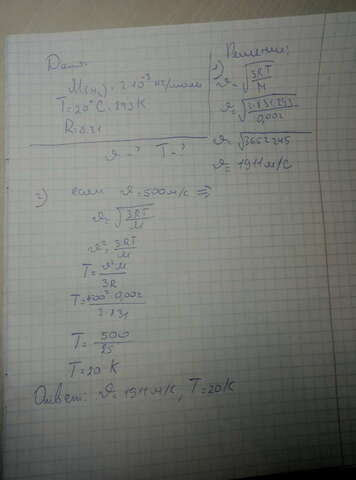 Дано:
M(H₂) = 2·10⁻³ кг/моль
T = 20°C = 293 K
R = 8.31
υ - ? T = ?
Решение:
1) υ = √(3RT/M)
υ = √(3·8.31·293/0,002)
υ = √3652245
υ = 1911 м/с
2) если υ = 500 м/с ⇒
υ = √(3RT/M)
υ² = 3RT/M
T = υ²M/3R
T = 500²·0,002/3·8.31
T = 500/25
T = 20 K
Ответ: υ = 1911 м/с, T = 20 K